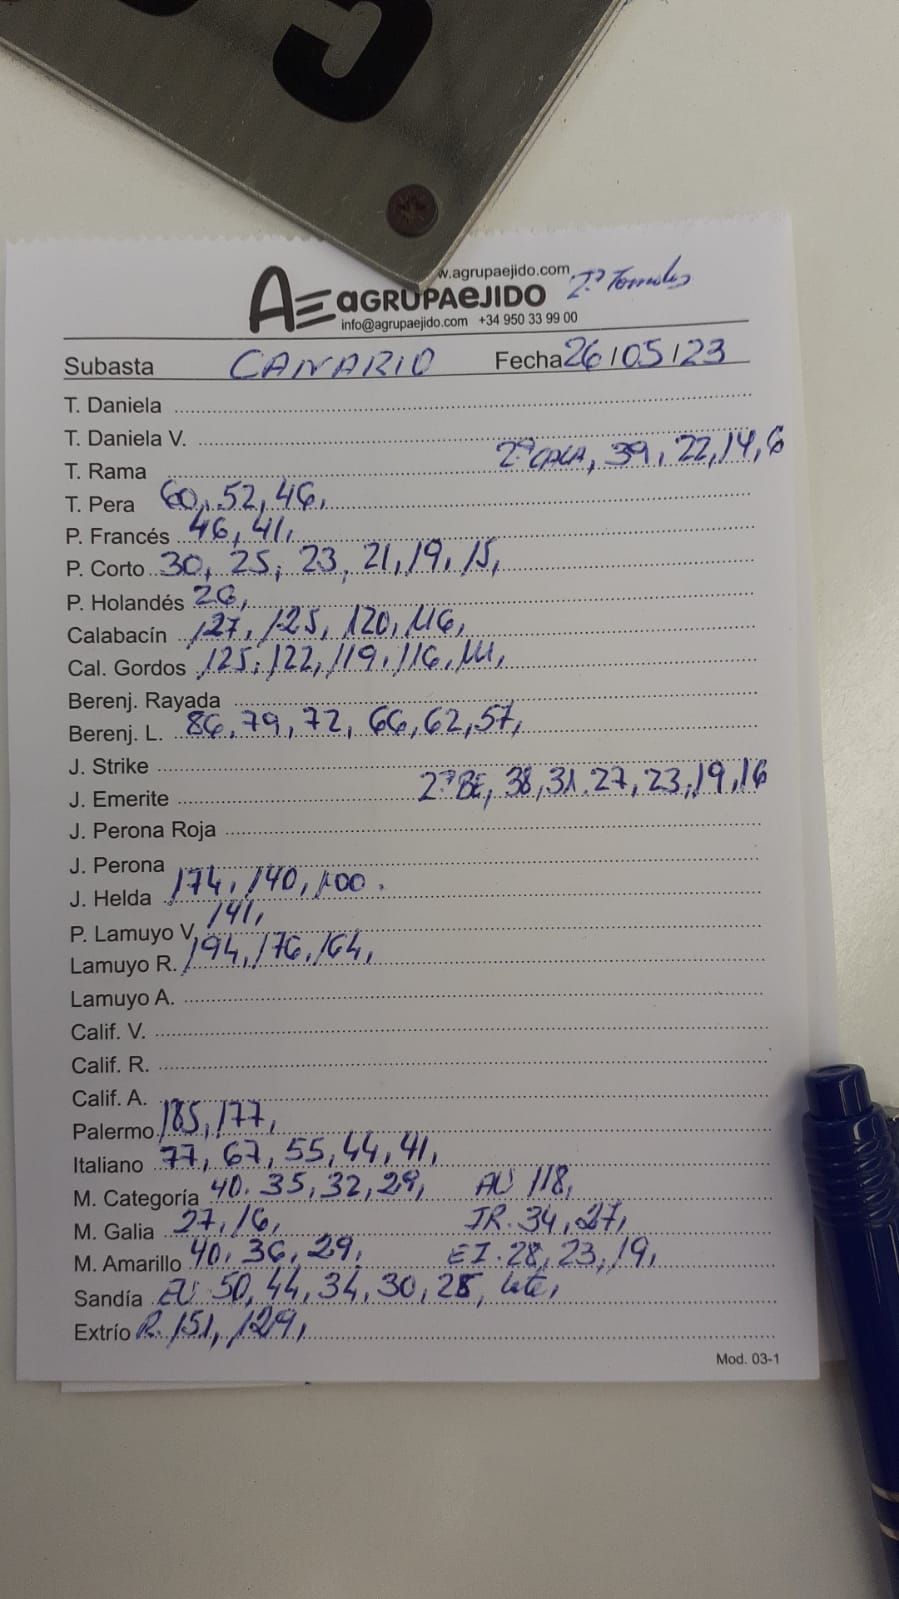 w.agrupaejido.com
AGRUPAEJIDO
info@agrupaejido.com +34 950 33 99 00
Subasta CANARIO Fecha 26/05/23
T. Daniela
T. Daniela V.
T. Rama 2ª CALA, 39, 22, 14, 6
T. Pera 60, 52, 46,
P. Francés 46, 41,
P. Corto 30, 25, 23, 21, 19, 15,
P. Holandés 26,
Calabacín 127, 125, 120, 116,
Cal. Gordos 125, 122, 119, 116, 111,
Berenj. Rayada
Berenj. L. 86, 79, 72, 66, 62, 57,
J. Strike
J. Emerite 2ª BE, 38, 31, 27, 23, 19, 16
J. Perona Roja
J. Perona
J. Helda 174, 140, 100.
P. Lamuyo V. 141,
Lamuyo R. 194, 176, 164,
Lamuyo A.
Calif. V.
Calif. R.
Calif. A.
Palermo 185, 177,
Italiano 77, 67, 55, 44, 41,
M. Categoría 40. 35, 32, 29, AU 118,
M. Galia 27, 16, JR. 34, 27,
M. Amarillo 40, 36, 29, EI. 28, 23, 19,
Sandía 50, 44, 34, 30, 28,
Extrío R. 151, 129,
Mod. 03-1